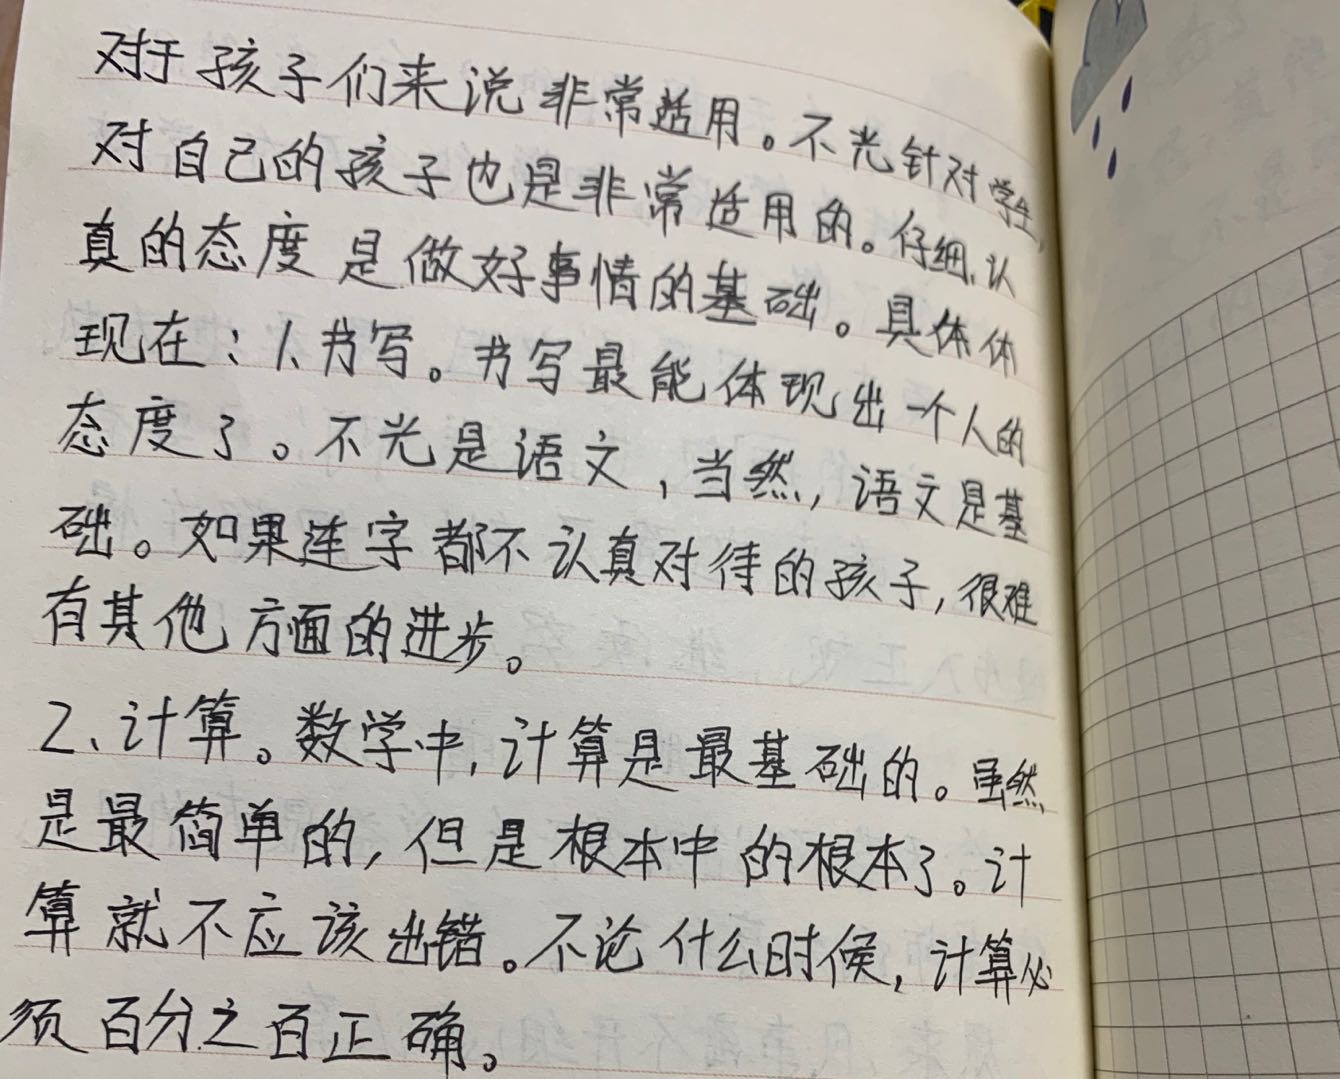 对于孩子们来说非常适用。不光针对学生,
对自己的孩子也是非常适用的。仔细、认
真的态度是做好事情的基础。具体体
现在：1、书写。书写最能体现出一个人的
态度了。不光是语文，当然，语文是基
础。如果连字都不认真对待的孩子，很难
有其他方面的进步。
2、计算。数学中，计算是最基础的。虽然
是最简单的，但是根本中的根本了。计
算就不应该出错。不论什么时候，计算必
须百分之百正确。